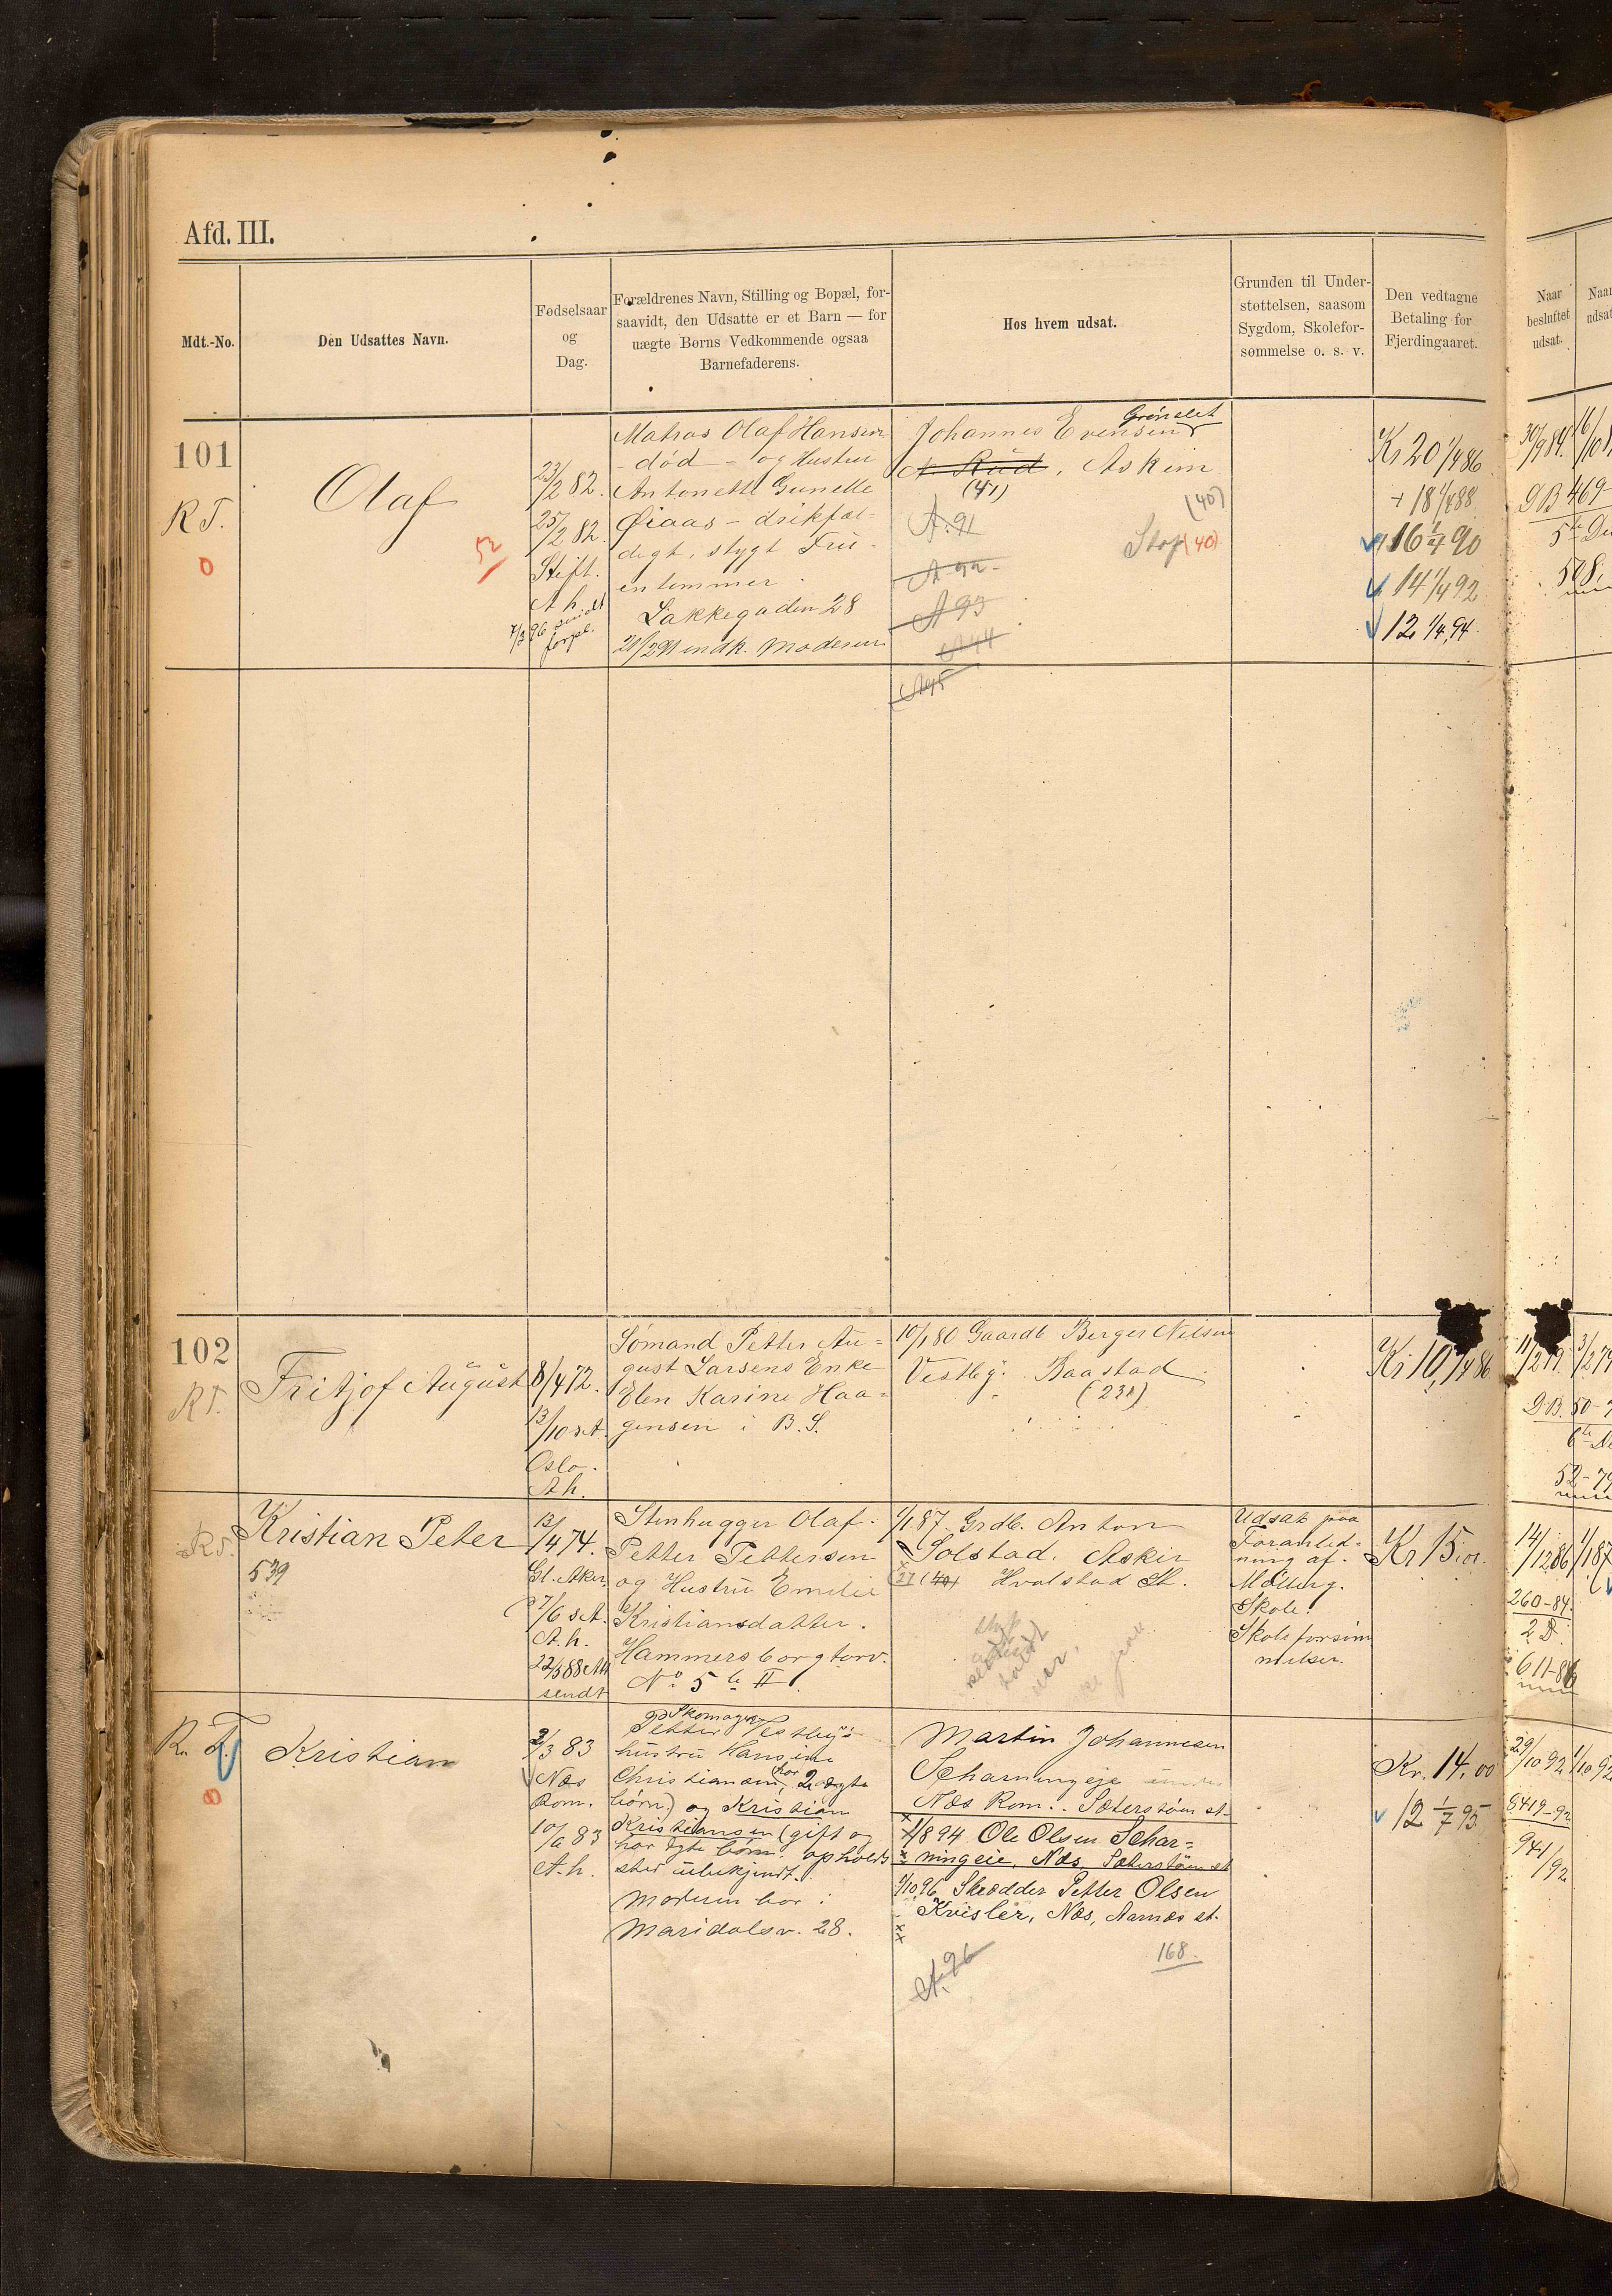 Afd. III.
Mdt.-No.
Den Udsattes Navn.
Fødselsaar
og
Dag.
Forældrenes Navn, Stilling og Bopæl, for-
saavidt, den Udsatte er et Barn — for
uægte Børns Vedkommende ogsaa
Barnefaderens.
Hos hvem udsat.
Grunden til Under-
støttelsen, saasom
Sygdom, Skolefor-
sømmelse o. s. v.
Den vedtagne
Betaling for
Fjerdingaaret.
Naar
besluttet
udsat.
101
R T.
0
Olaf
52
23/2 82.
25/2 82.
Stift.
A h.
7/3 96
Matros Olaf Hansen
- død - og Hustru
Antonette Gunelle
Øiaas - drikfæl-
digt, stygt Fru-
entemmer.
Lakkegaden 28
Moderen
Grønslet
Johannes Evensen
N. Rud, Askim
(41)
(40)
A. 91
Stop (40)
A 92
A 93
A 94
A 95
Kr 20 1/4 86
+ 18 1/4 88
16 1/4 90
14 1/4 92
12 1/4 94.
30/9 84.
DB 469
508.
102
R T.
Fritjof August
8/4 72.
13/10 s A.
Oslo.
A h.
Sømand Petter Au-
gust Larsens Enke
Elen Karine Haa-
gensen i B. S.
10/1 80 Gaardb Berger Nilsen
Vestby. Baastad
(231)
Kr 10, 1/4 86
11/2 79.
3/2 79
D.B. 50-7
52-79
R T.
Kristian Peter
539
13/4 74.
Gl. Aker
27/6 s A.
A. h.
22/5 88 Att
sendt
Stenhugger Olaf
Petter Pettersen
og Hustru Emilie
Kristiansdatter.
Hammersborgtorv.
No 5 b II.
1/1 87. Grdb. Anton
Solstad. Askim
27 (40) Hvalstad St.
Udsat paa
Foranled-
ning af
Møllerg.
Skole.
Skoleforsøm
melser.
Kr 15.
14/12 86
1/1 87
260-84.
2 D.
611-86
R. T.
0
Kristian
2/3 83
Næs
Rom.
10/6 83
A. h.
Skomager
Petter Vestbys
hustru Hansine
Christiansen, (har 2 ægte
børn) og Kristian
Kristiansen (gift og
har ægte børn. opholds
sted ubekjendt.
Moderen bor i
Maridalsv. 28.
Martin Johannesen
Scharningeje
Næs Rom.. Sæterstøen st-
1/8 94 Ole Olsen Schar-
ningeie, Næs, Sæterstøen st
1/10 96 Skrædder Petter Olsen
Kvisler, Næs, Aarnæs st.
A. 96
168.
Kr. 14,00
12 1/7 95
29/10 92
1/10 92
8419-92
941/92